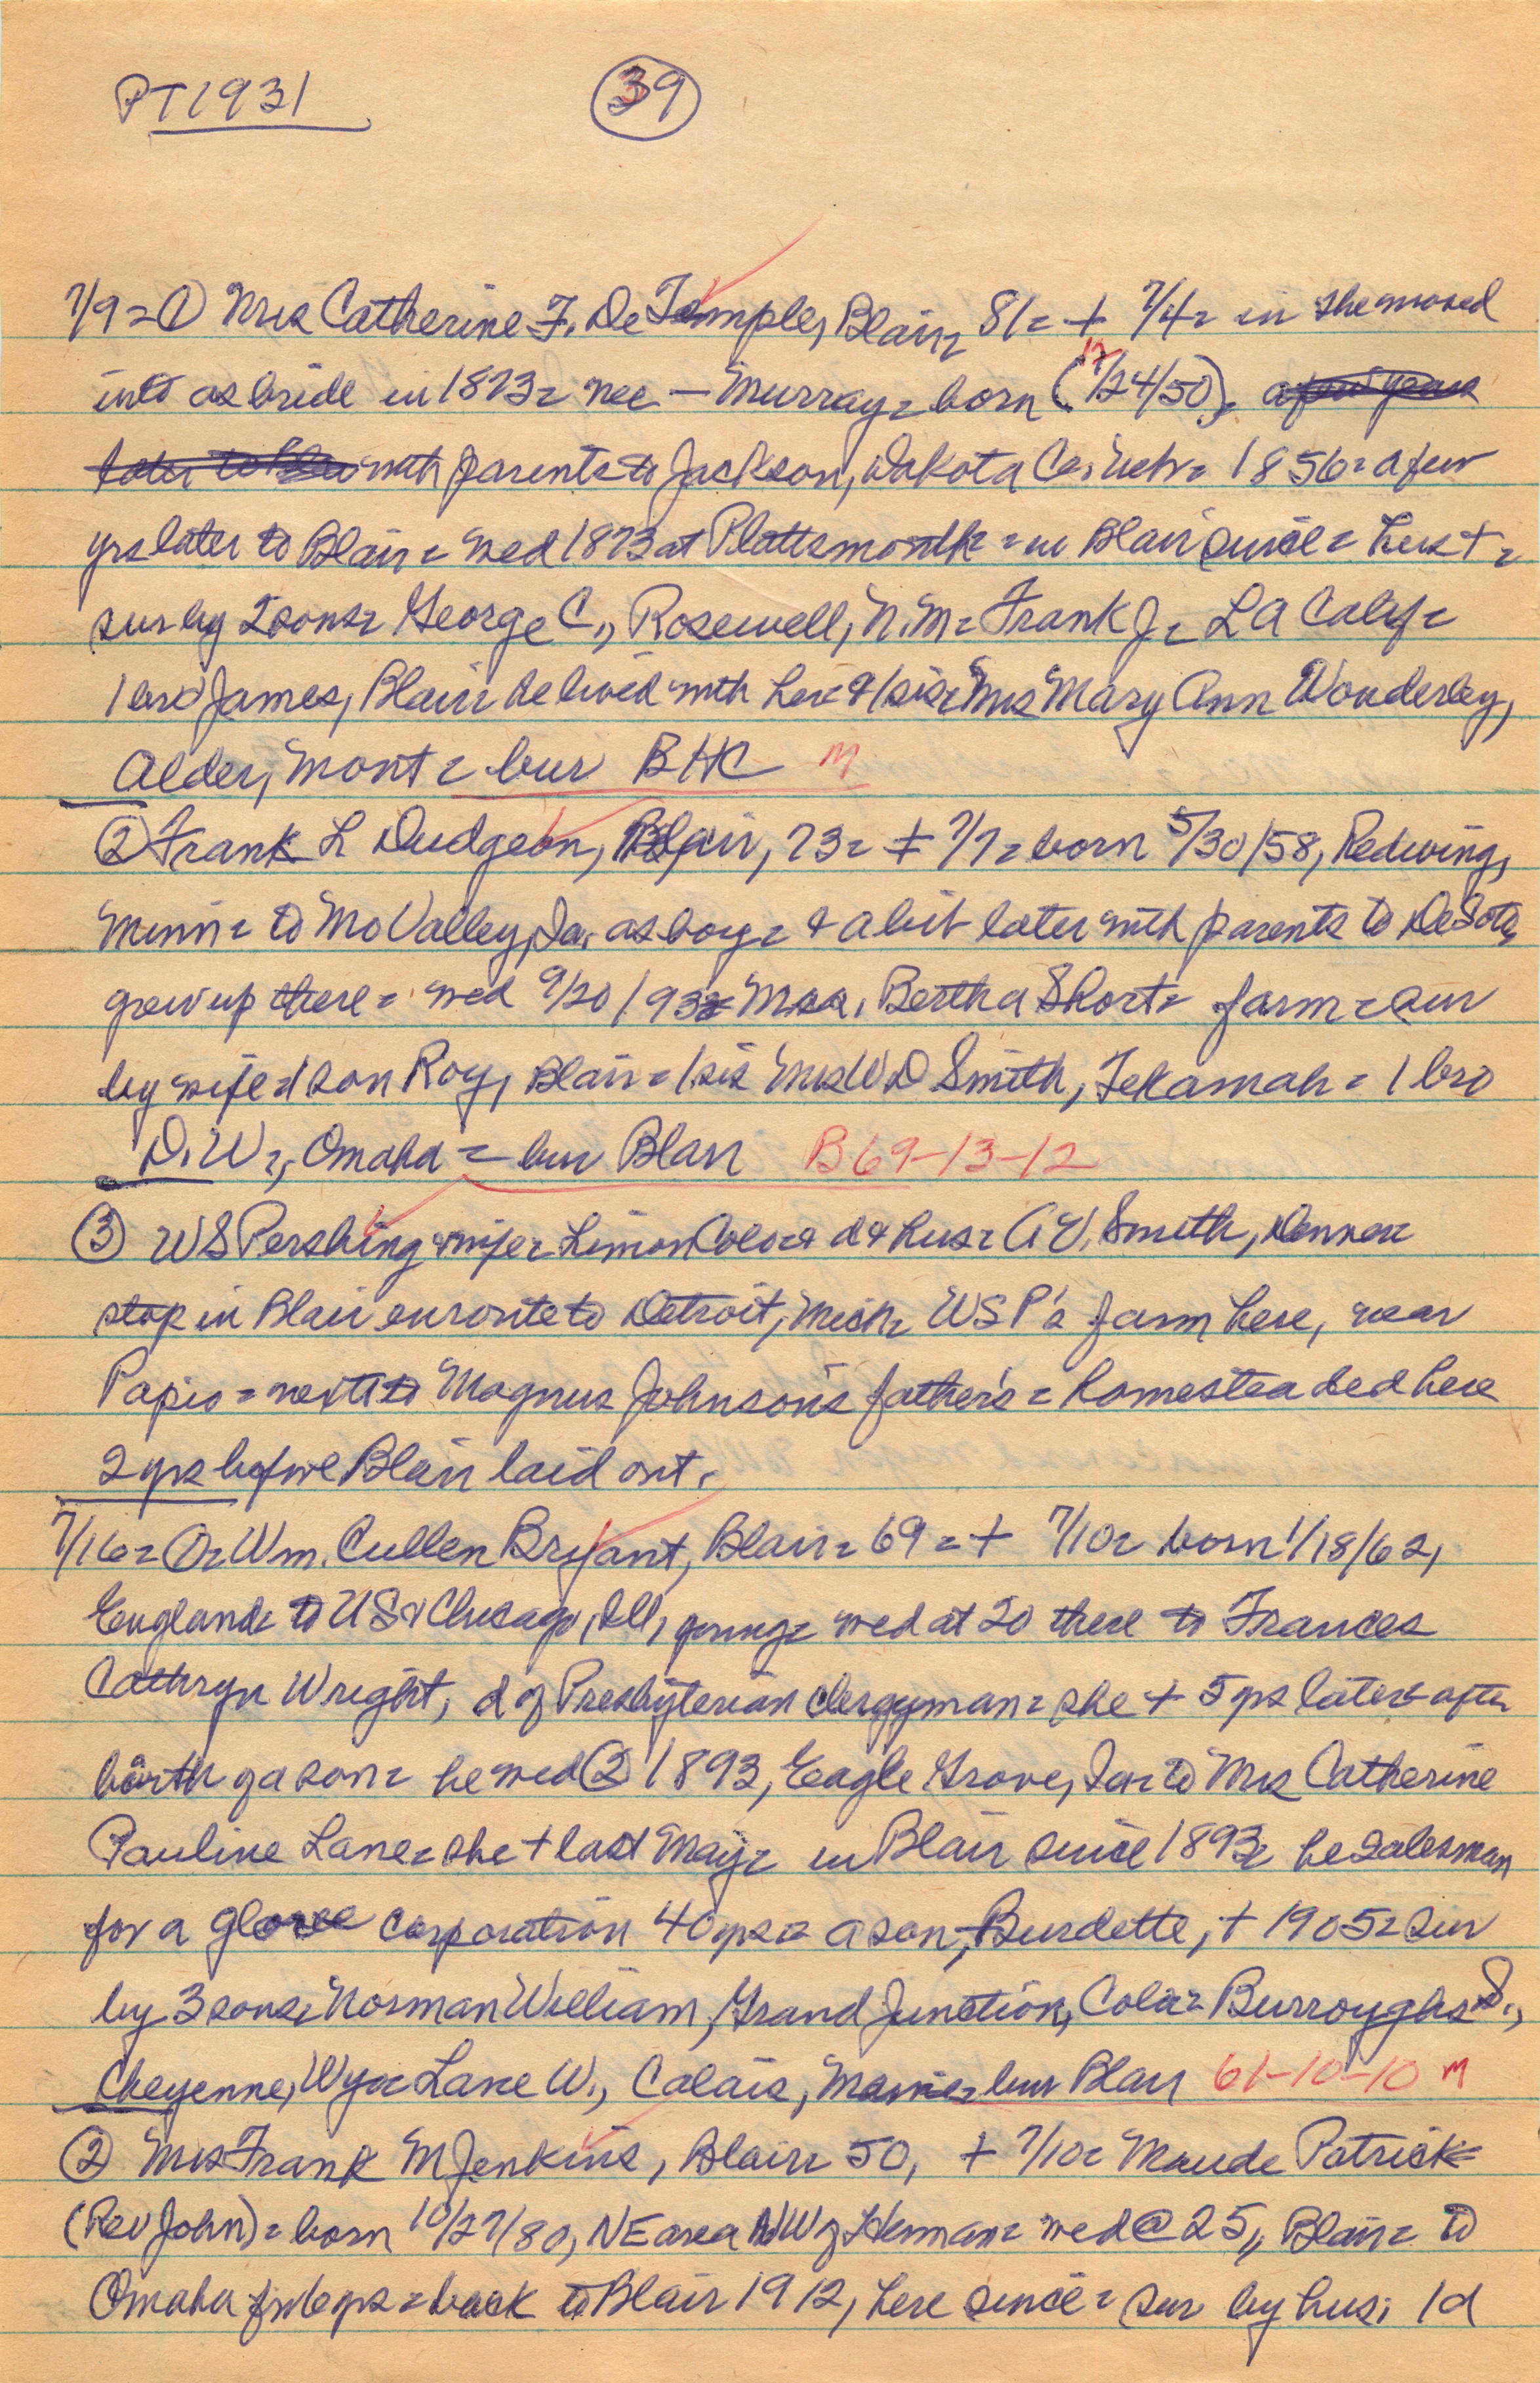 PT1931
39
7/9= ① Mrs Catherine F. De Temple, Blair, 81= + 7/4= in she moved
into as bride in 1873= nee — Murray= born (12/24/50)=
with parents to Jackson, Dakota Co. Nebr= 1856= a few
yrs later to Blair= wed 1873 at Plattsmouth= in Blair since= hus +=
sur by 2 sons= George C., Rosewell, N.M.= Frank J= LA Calif=
1 bro James, Blair he lived with her & 1 sis= Mrs Mary Ann Wonderley,
Alder, Mont= bur BHC M
② Frank L Dudgeon, Blair, 73= + 7/7= born 5/30/58, Redwing,
Minn= to Mo Valley, Ia. as boy= & a bit later with parents to DeSoto,
grew up there= wed 9/20/93= Bertha Short= farm= sur
by wife 1 son Roy, Blair= 1 sis Mrs W D Smith, Tekamah= 1 bro
D.W=, Omaha= bur Blair B 69-13-12
③ W S Pershing & wife= Limon Colo= & d & hus= A V. Smith, Denver
stop in Blair enroute to Detroit, Mich= WSP's farm here, near
Papio= next to Magnus Johnson's father's= homesteaded here
2 yrs before Blair laid out.
7/16= ①= Wm. Cullen Bryant, Blair= 69= + 7/10= born 1/18/62,
England= to US & Chicago, Ill, young= wed at 20 there to Frances
Cathryn Wright, d of Presbyterian clergyman= she + 5 yrs later after
birth of a son= he wed ② 1893, Eagle Grove, Ia= to Mrs Catherine
Pauline Lane= she + last May= in Blair since 1893= he salesman
for a glove corporation 40 yrs= a son, Burdette, + 1905= sur
by 3 sons, Norman William, Grand Junction, Colo= Burroughs S.,
Cheyenne, Wyo= Lane W., Calais, Maine= bur Blair 61-10-10 M
② Mrs Frank M Jenkins, Blair= 50, + 7/10= Maude Patrick=
(Rev John)= born 10/27/80, NE area NW of Herman= wed @ 25, Blair= to
Omaha for 6 yrs= back to Blair 1912, here since= sur by hus; 1d